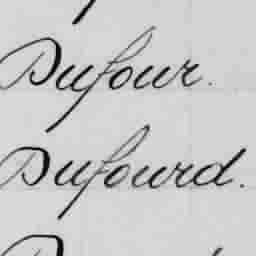 Dufour.
Dufourd.